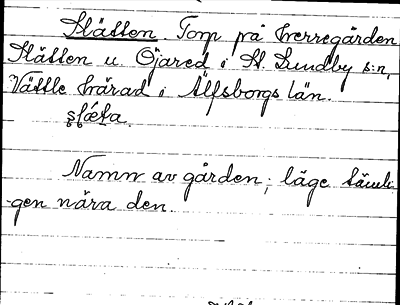 Slätten. Torp på herregården
Slätten u. Öjared i St. Lundby s:n,
Vättle härad i Älfsborgs län.
Namn av gården; läge tämli-
gen nära den.